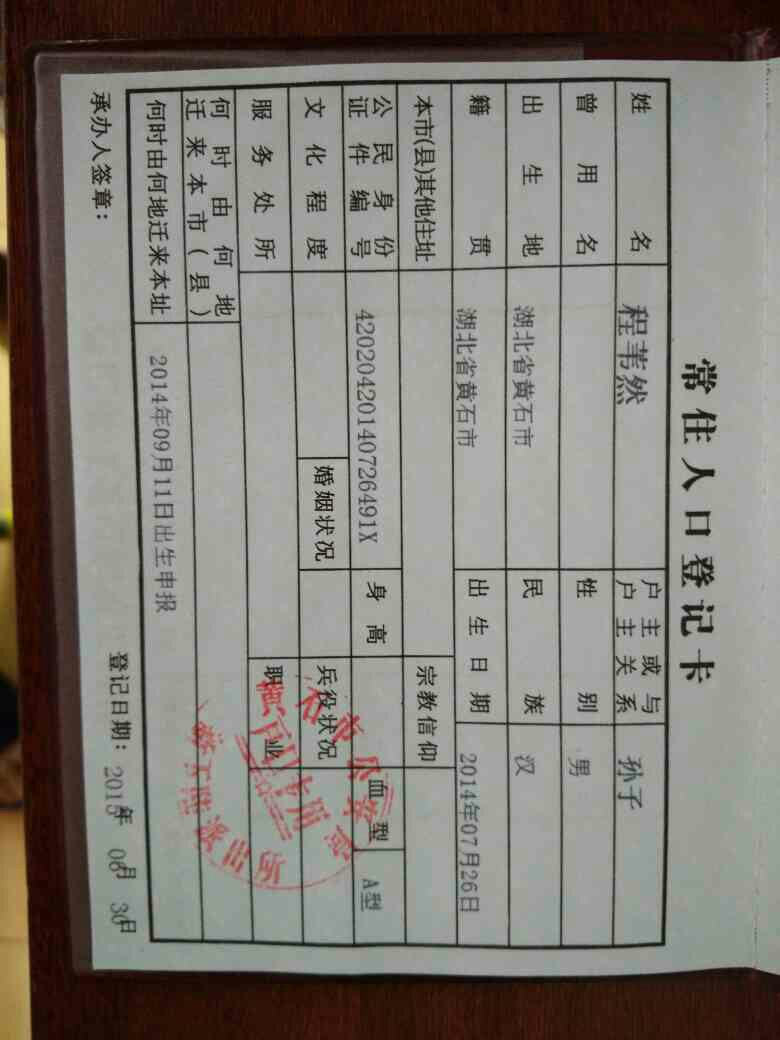 常住人口登记卡
姓名 程苇然 户主或与户主关系 孙子
曾用名 性别 男
出生地 湖北省黄石市 民族 汉
籍贯 湖北省黄石市 出生日期 2014年07月26日
本市(县)其他住址 宗教信仰
公民身份证件编号 42020420140726491X 身高 血型 A型
文化程度 婚姻状况 兵役状况
服务处所 职业
何时由何地迁来本市(县)
何时由何地迁来本址 2014年09月11日出生申报
承办人签章： 登记日期：2015年 06月 30日
户口专用